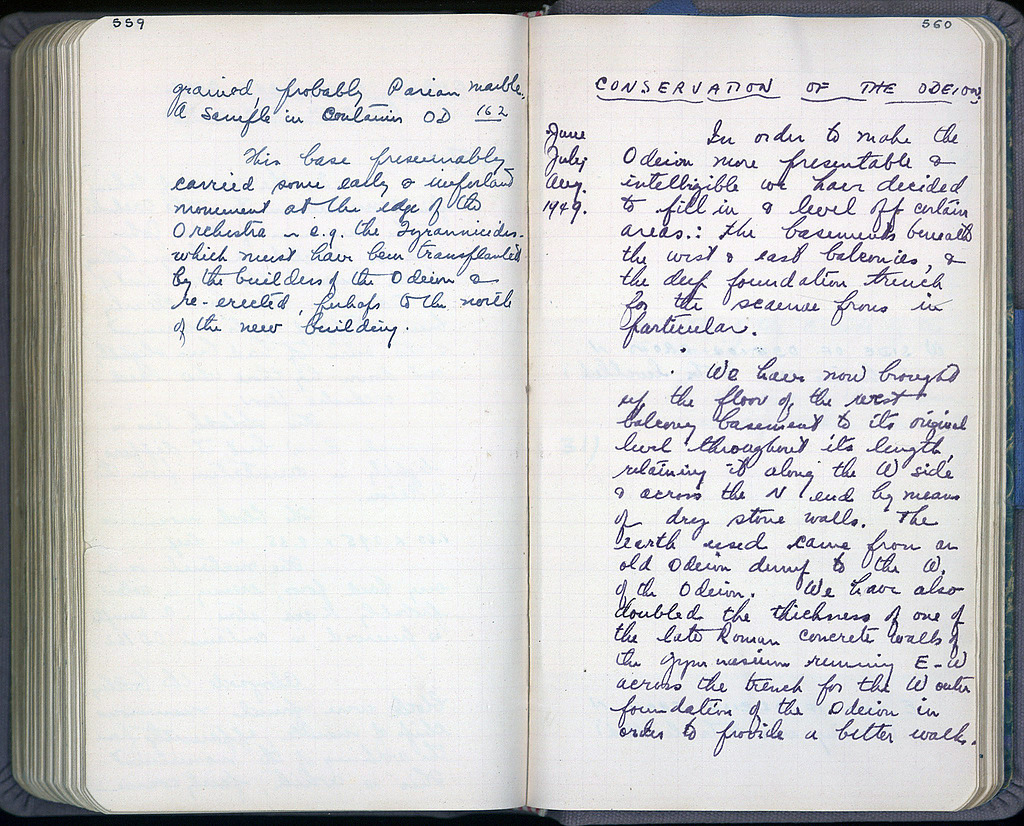 559
grained, probably Parian marble.
A sample in container OD 162
This base presumably
carried some early & important
monument at the edge of the
Orchestra - e.g. the Tyrannicides -
which must have been transplanted
by the builders of the Odeion &
re-erected, perhaps to the north
of the new building.
560
CONSERVATION OF THE ODEION
June
July
Aug.
1949.
In order to make the
Odeion more presentable &
intelligible we have decided
to fill in & level off certain
areas.: the basements beneath
the west & east balconies, &
the deep foundation trench
for the scaenae frons in
particular.
We have now brought
up the floor of the west
balcony basement to its original
level throughout its length,
retaining it along the W side
& across the N end by means
of dry stone walls. The
earth used came from an
old Odeion dump to the W.
of the Odeion. We have also
doubled the thickness of one of
the late Roman concrete walls of
the gymnasium running E-W
across the trench for the W outer
foundation of the Odeion in
order to provide a better walk.